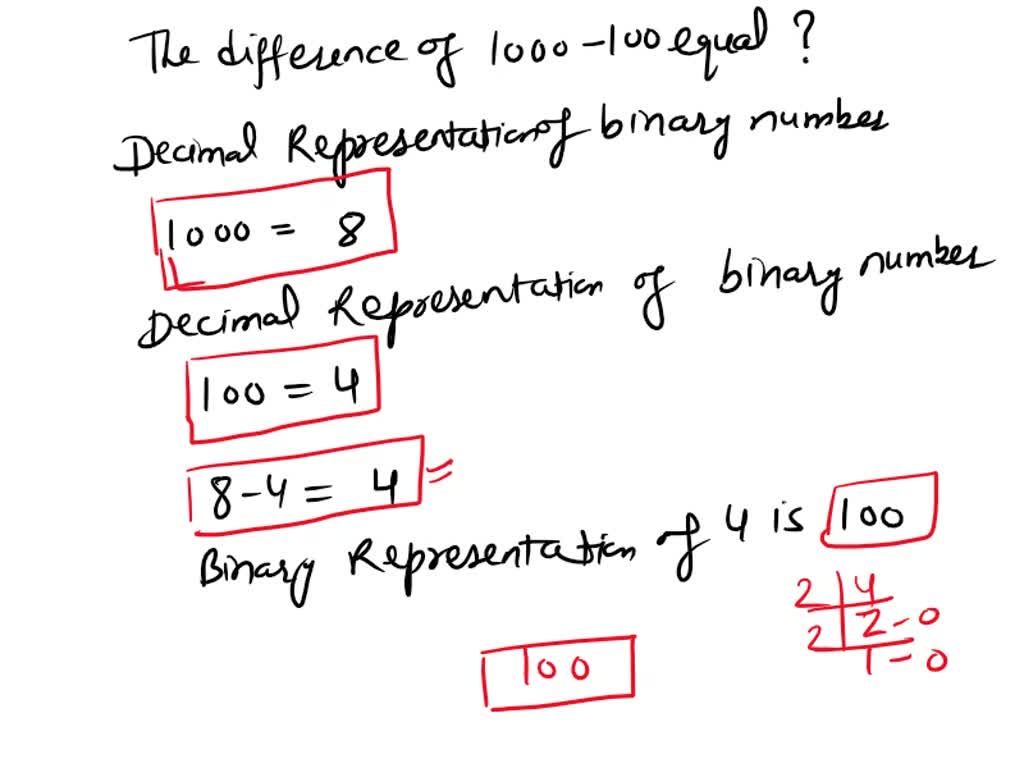 The difference of 1000-100 equal ?
Decimal Representation of binary number
1000 = 8
Decimal Representation of binary number
100 = 4
8-4 = 4 =
Binary Representation of 4 is 100
2 4
2 2-0
1=0
100